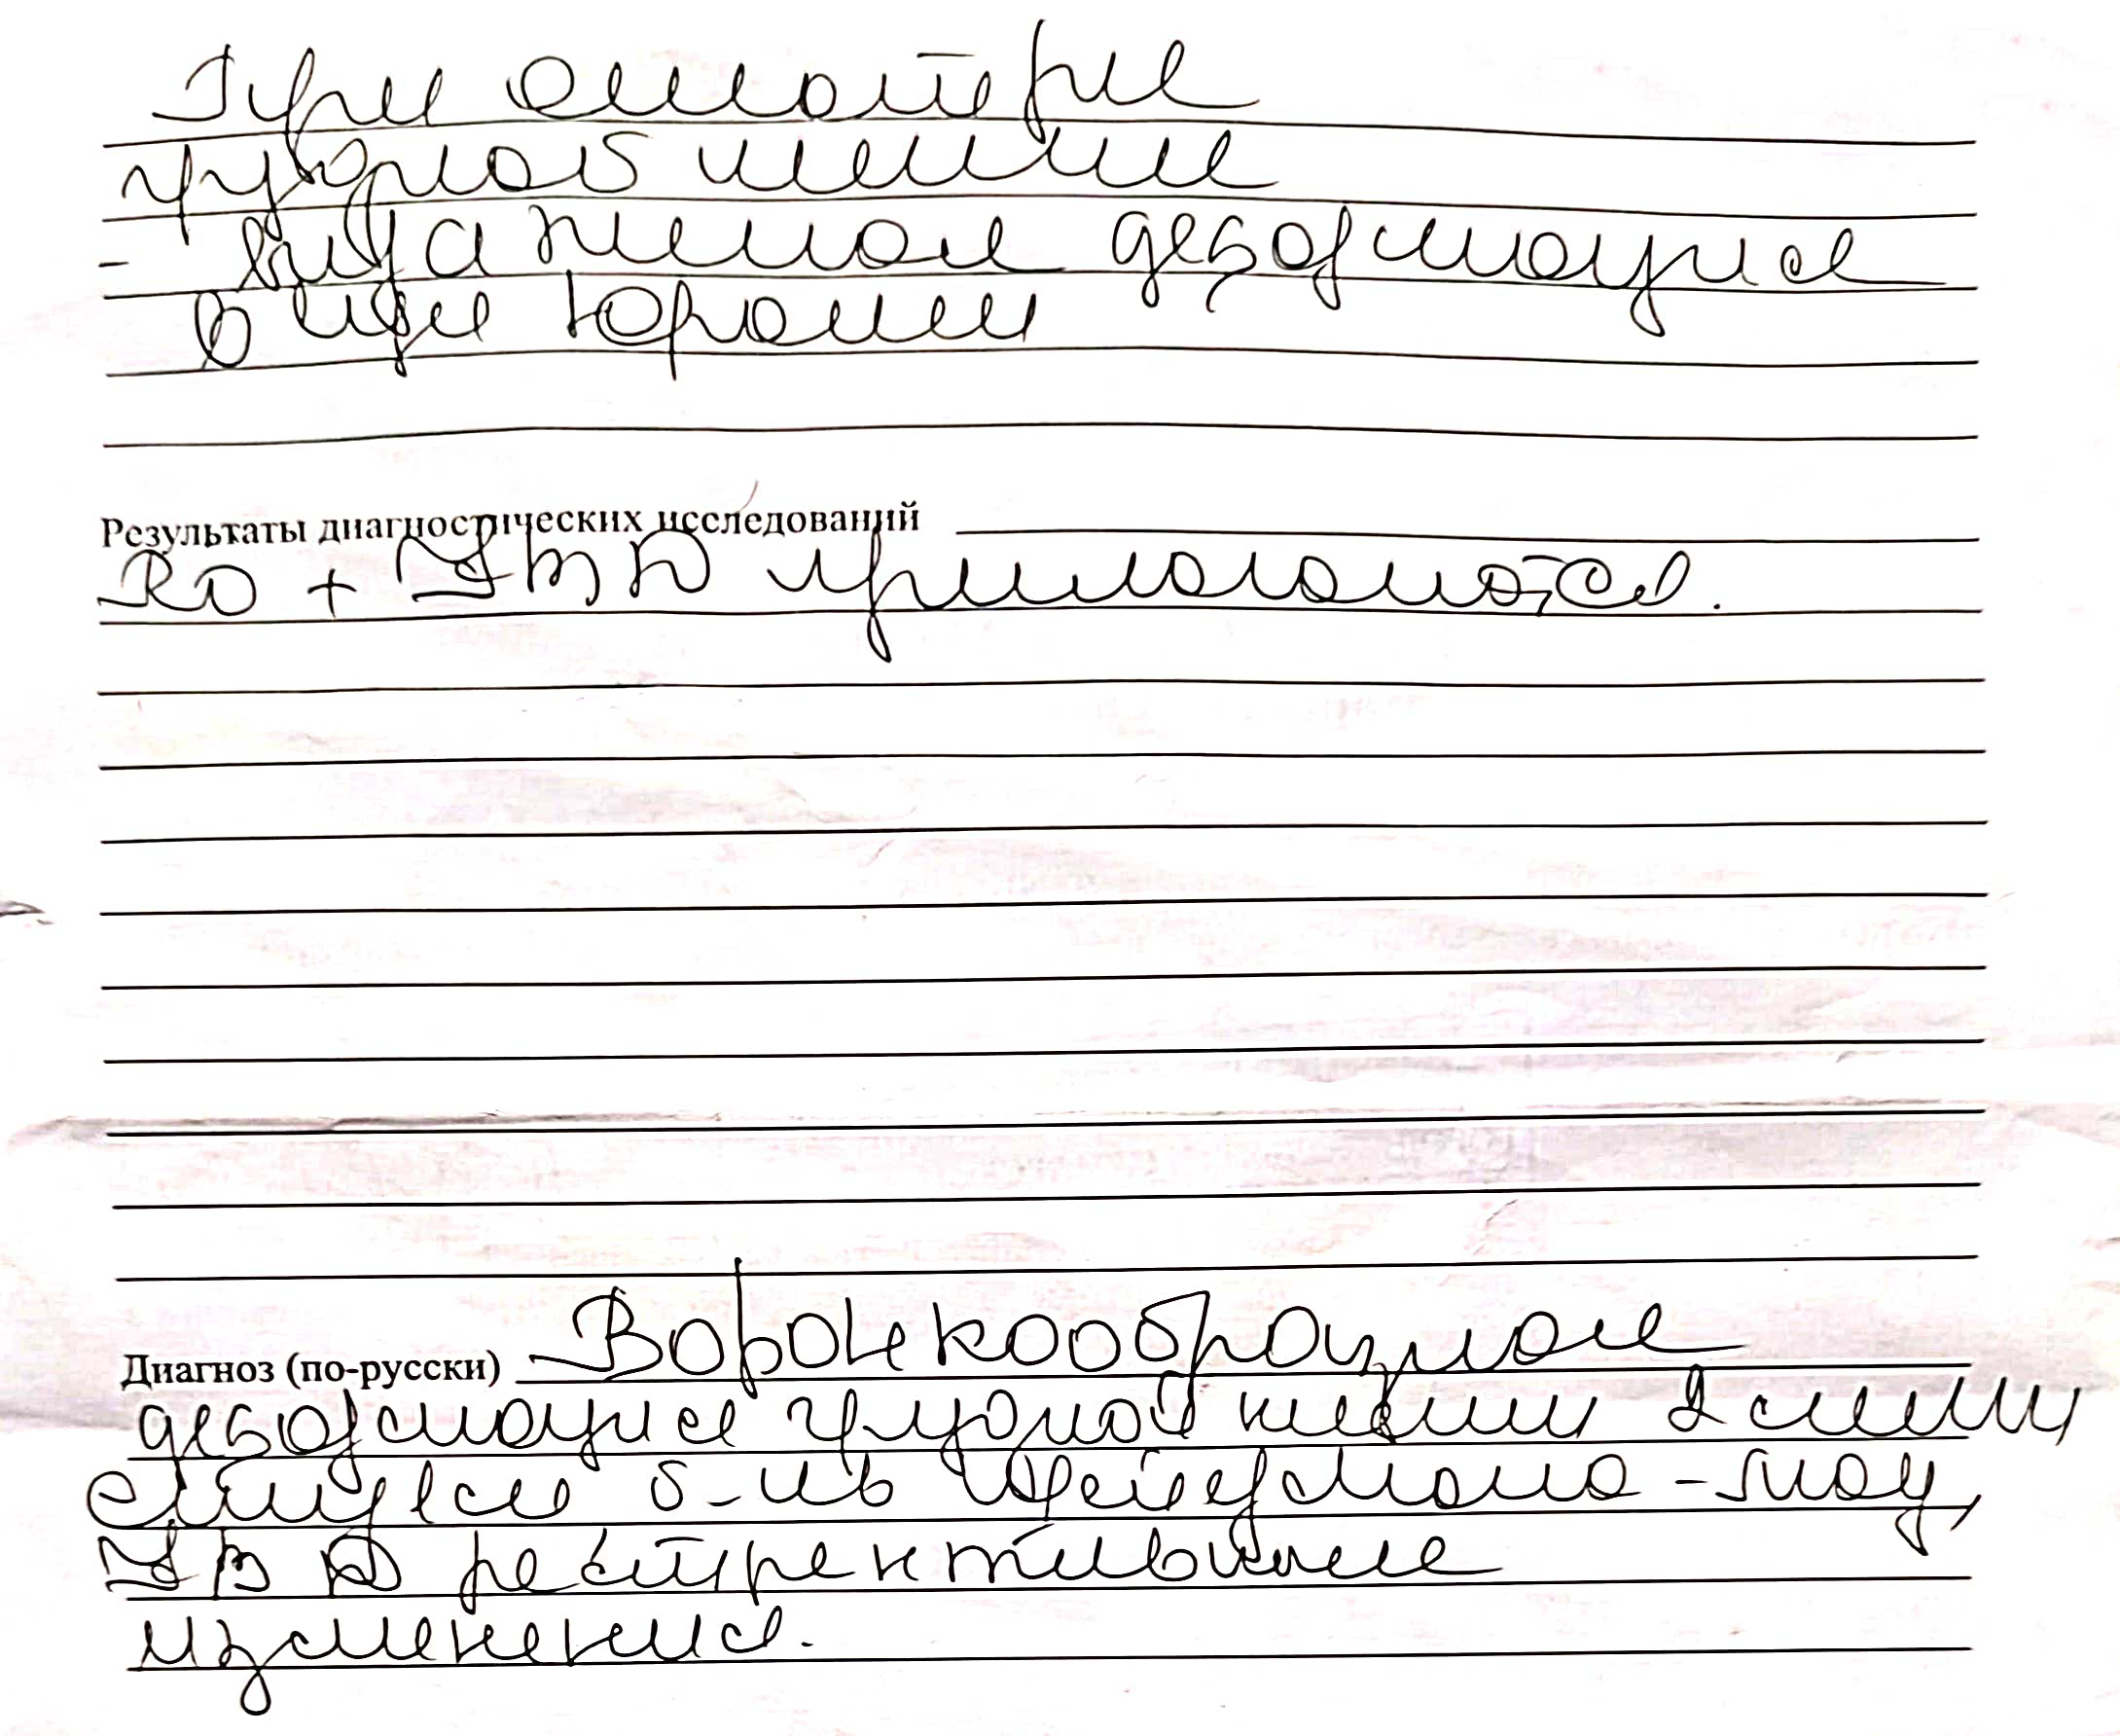 При осмотре
грудной клетки
- видимая деформация
Результаты диагностических исследований
RD + ФВД прилагаются.
Диагноз (по-русски) Воронкообразная
деформация грудной клетки 2 степени
б-нь Шейермана-Мау,
ФВД рестриктивные
изменения.